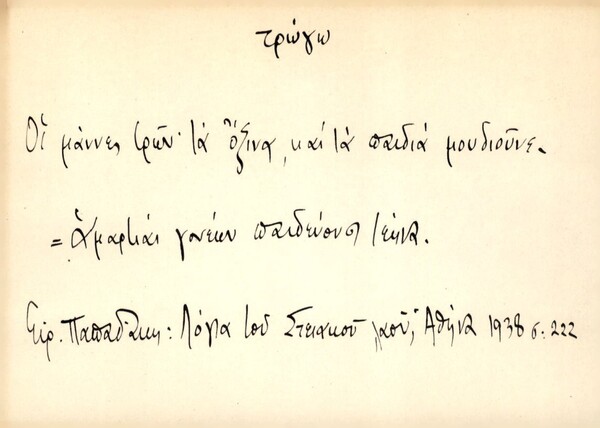 τρώγω
Οἱ μάννες τρῶν' τὰ ὄξινα, καὶ τὰ παιδιά μουδιοῦνε.
= Ἁμαρτίαι γονέων παιδεύουσι τέκνα.
Εἰρ. Παπαδάκη: Λόγια τοῦ Στειακοῦ λαοῦ, Ἀθήνα 1938 σ. 222